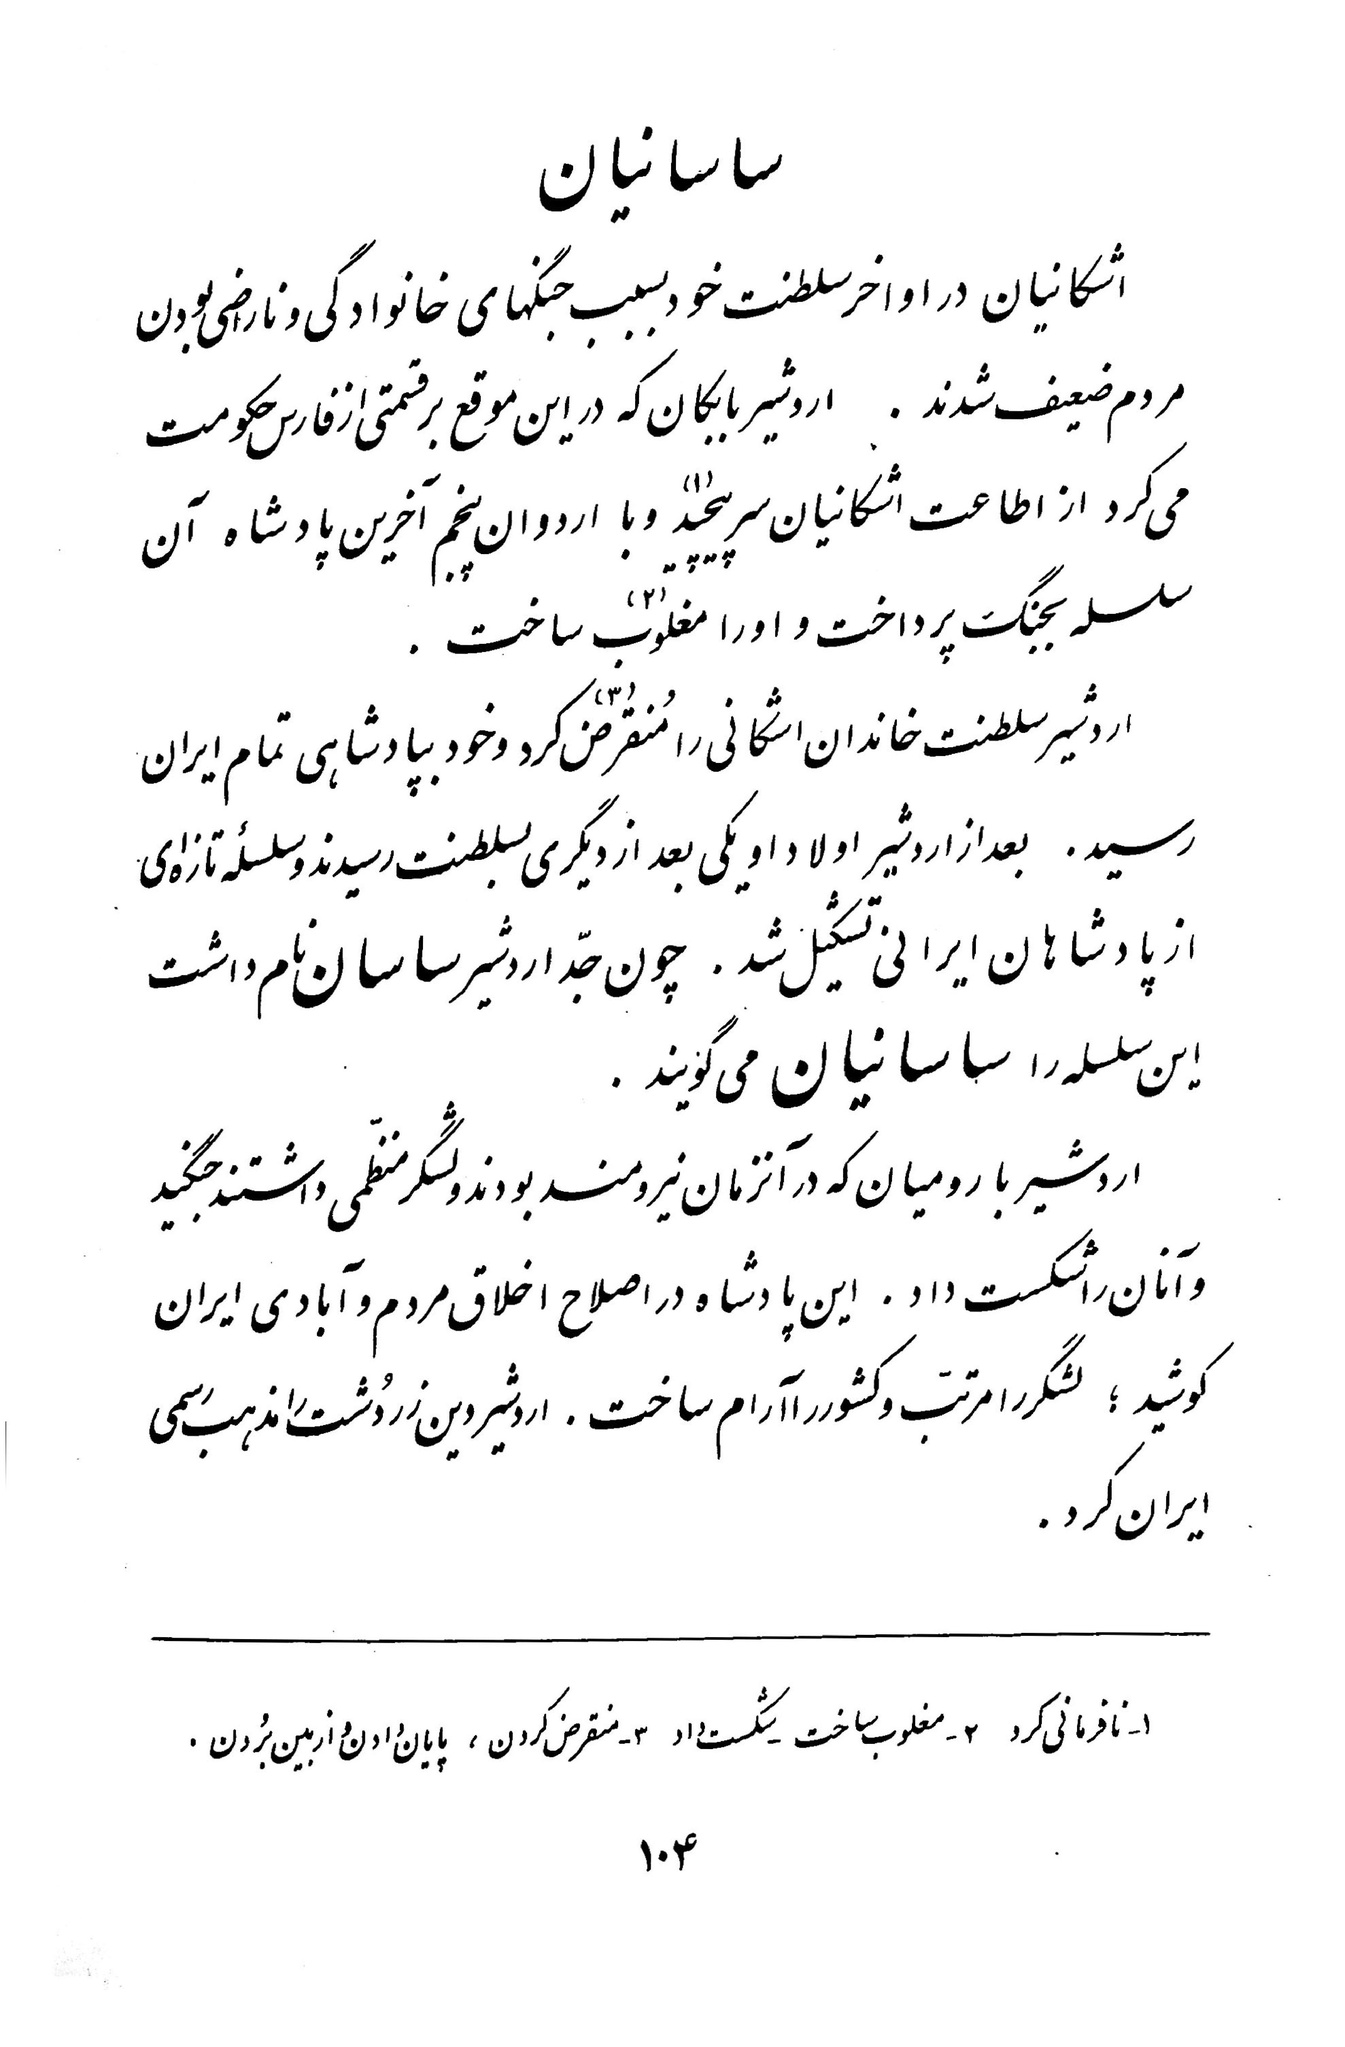 ساسانیان
اشکانیان در اواخر سلطنت خود بسبب جنگهای خانوادگی و ناراضی بودن
مردم ضعیف شدند . اردشیر بابکان که در این موقع بر قسمتی از فارس حکومت
می‌کرد از اطاعت اشکانیان سر پیچید(۱) و با اردوان پنجم آخرین پادشاه آن
سلسله بجنگ پرداخت و او را مغلوب(۲) ساخت .
اردشیر سلطنت خاندان اشکانی را مُنقرض(۳) کرد و خود بپادشاهی تمام ایران
رسید . بعد از اردشیر اولاد او یکی بعد از دیگری بسلطنت رسیدند و سلسلهٔ تازه‌ای
از پادشاهان ایرانی تشکیل شد . چون جدّ اردشیر ساسان نام داشت
این سلسله را ساسانیان می‌گویند .
اردشیر با رومیان که در آنزمان نیرومند بودند و لشگر منظّمی داشتند جنگید
و آنان را شکست داد . این پادشاه در اصلاح اخلاق مردم و آبادی ایران
کوشید ؛ لشگر را مرتّب و کشور را آرام ساخت . اردشیر دین زردُشت را مذهب رسمی
ایران کرد .
۱- نافرمانی کرد ۲- مغلوب ساخت - شکست داد ۳- منقرض کردن ، پایان دادن و از بین بُردن .
۱۰۴